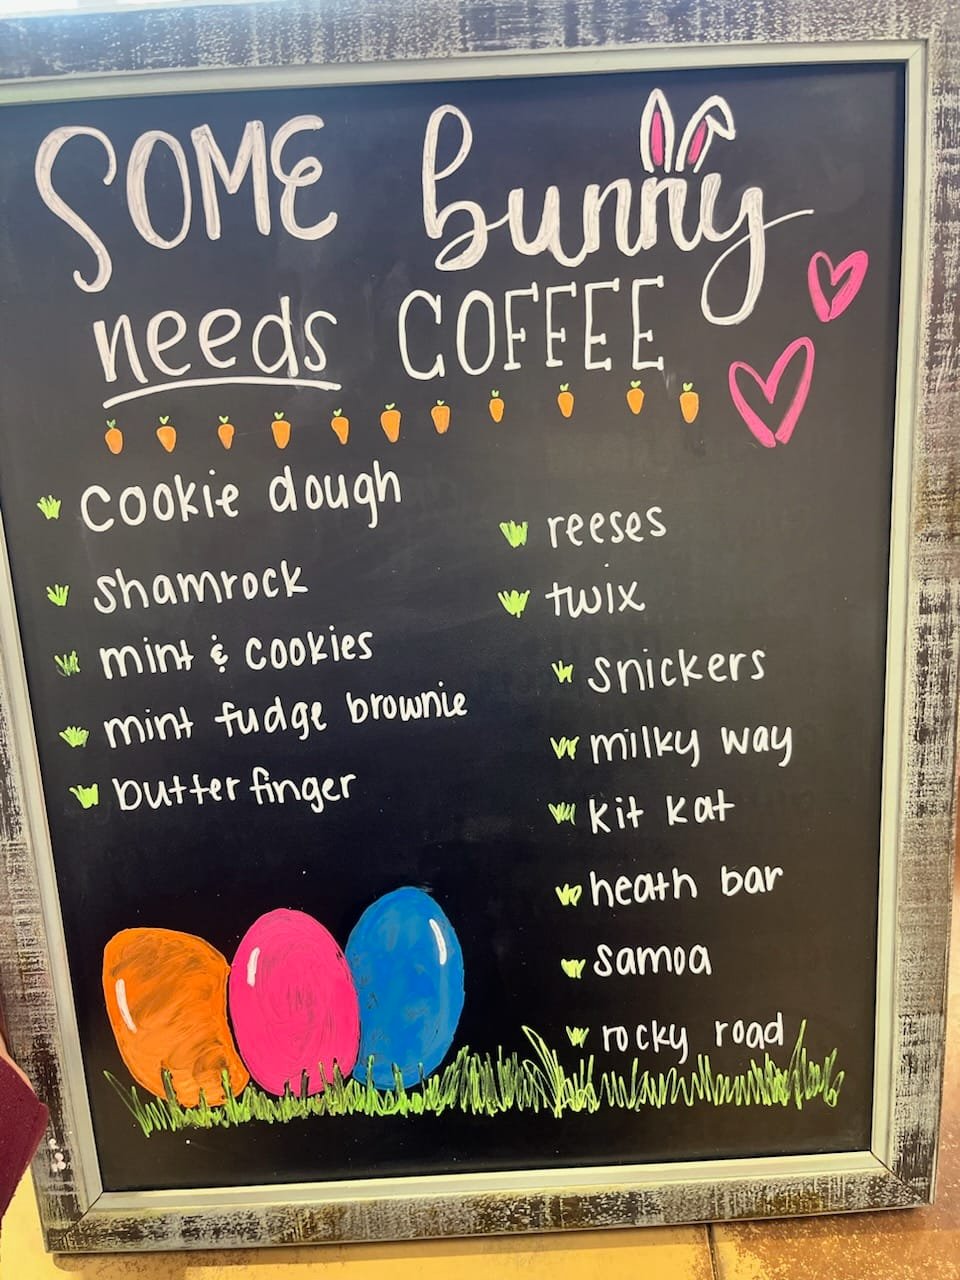 SOME bunny
needs COFFEE
cookie dough
shamrock
mint & cookies
mint fudge brownie
butterfinger
reeses
twix
snickers
milky way
kit kat
heath bar
samoa
rocky road